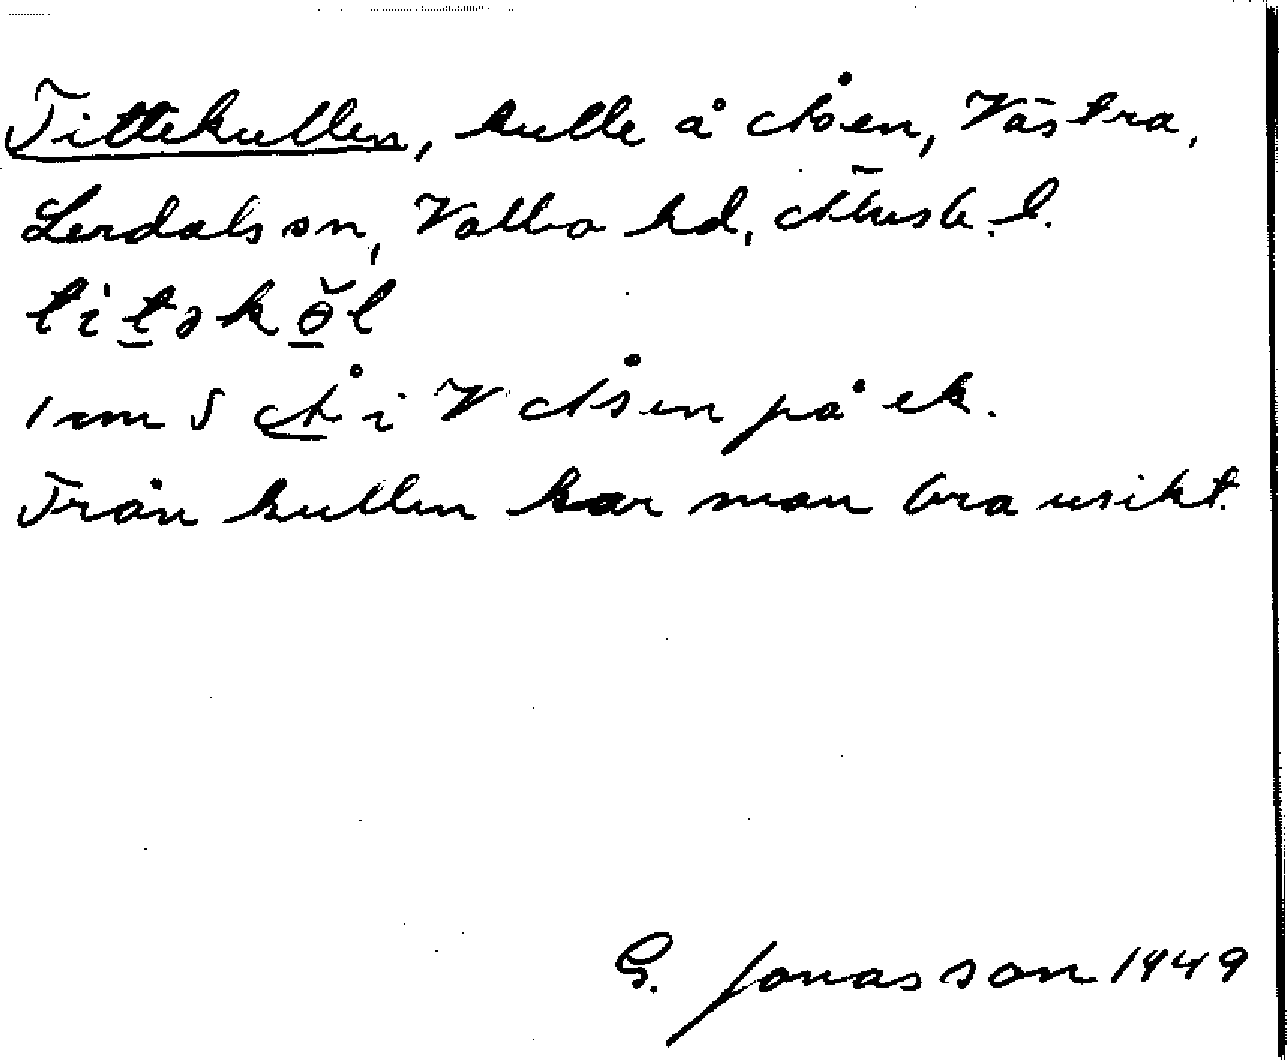 Tittekullen, kulle å Åsen, Västra,
Lerdals sn, Valbo hd, Älvsb. l.
titəkö̆l
1 cm S Å i V Åsen på ek.
Från kullen har man bra usikt.
G. Jonasson 1949